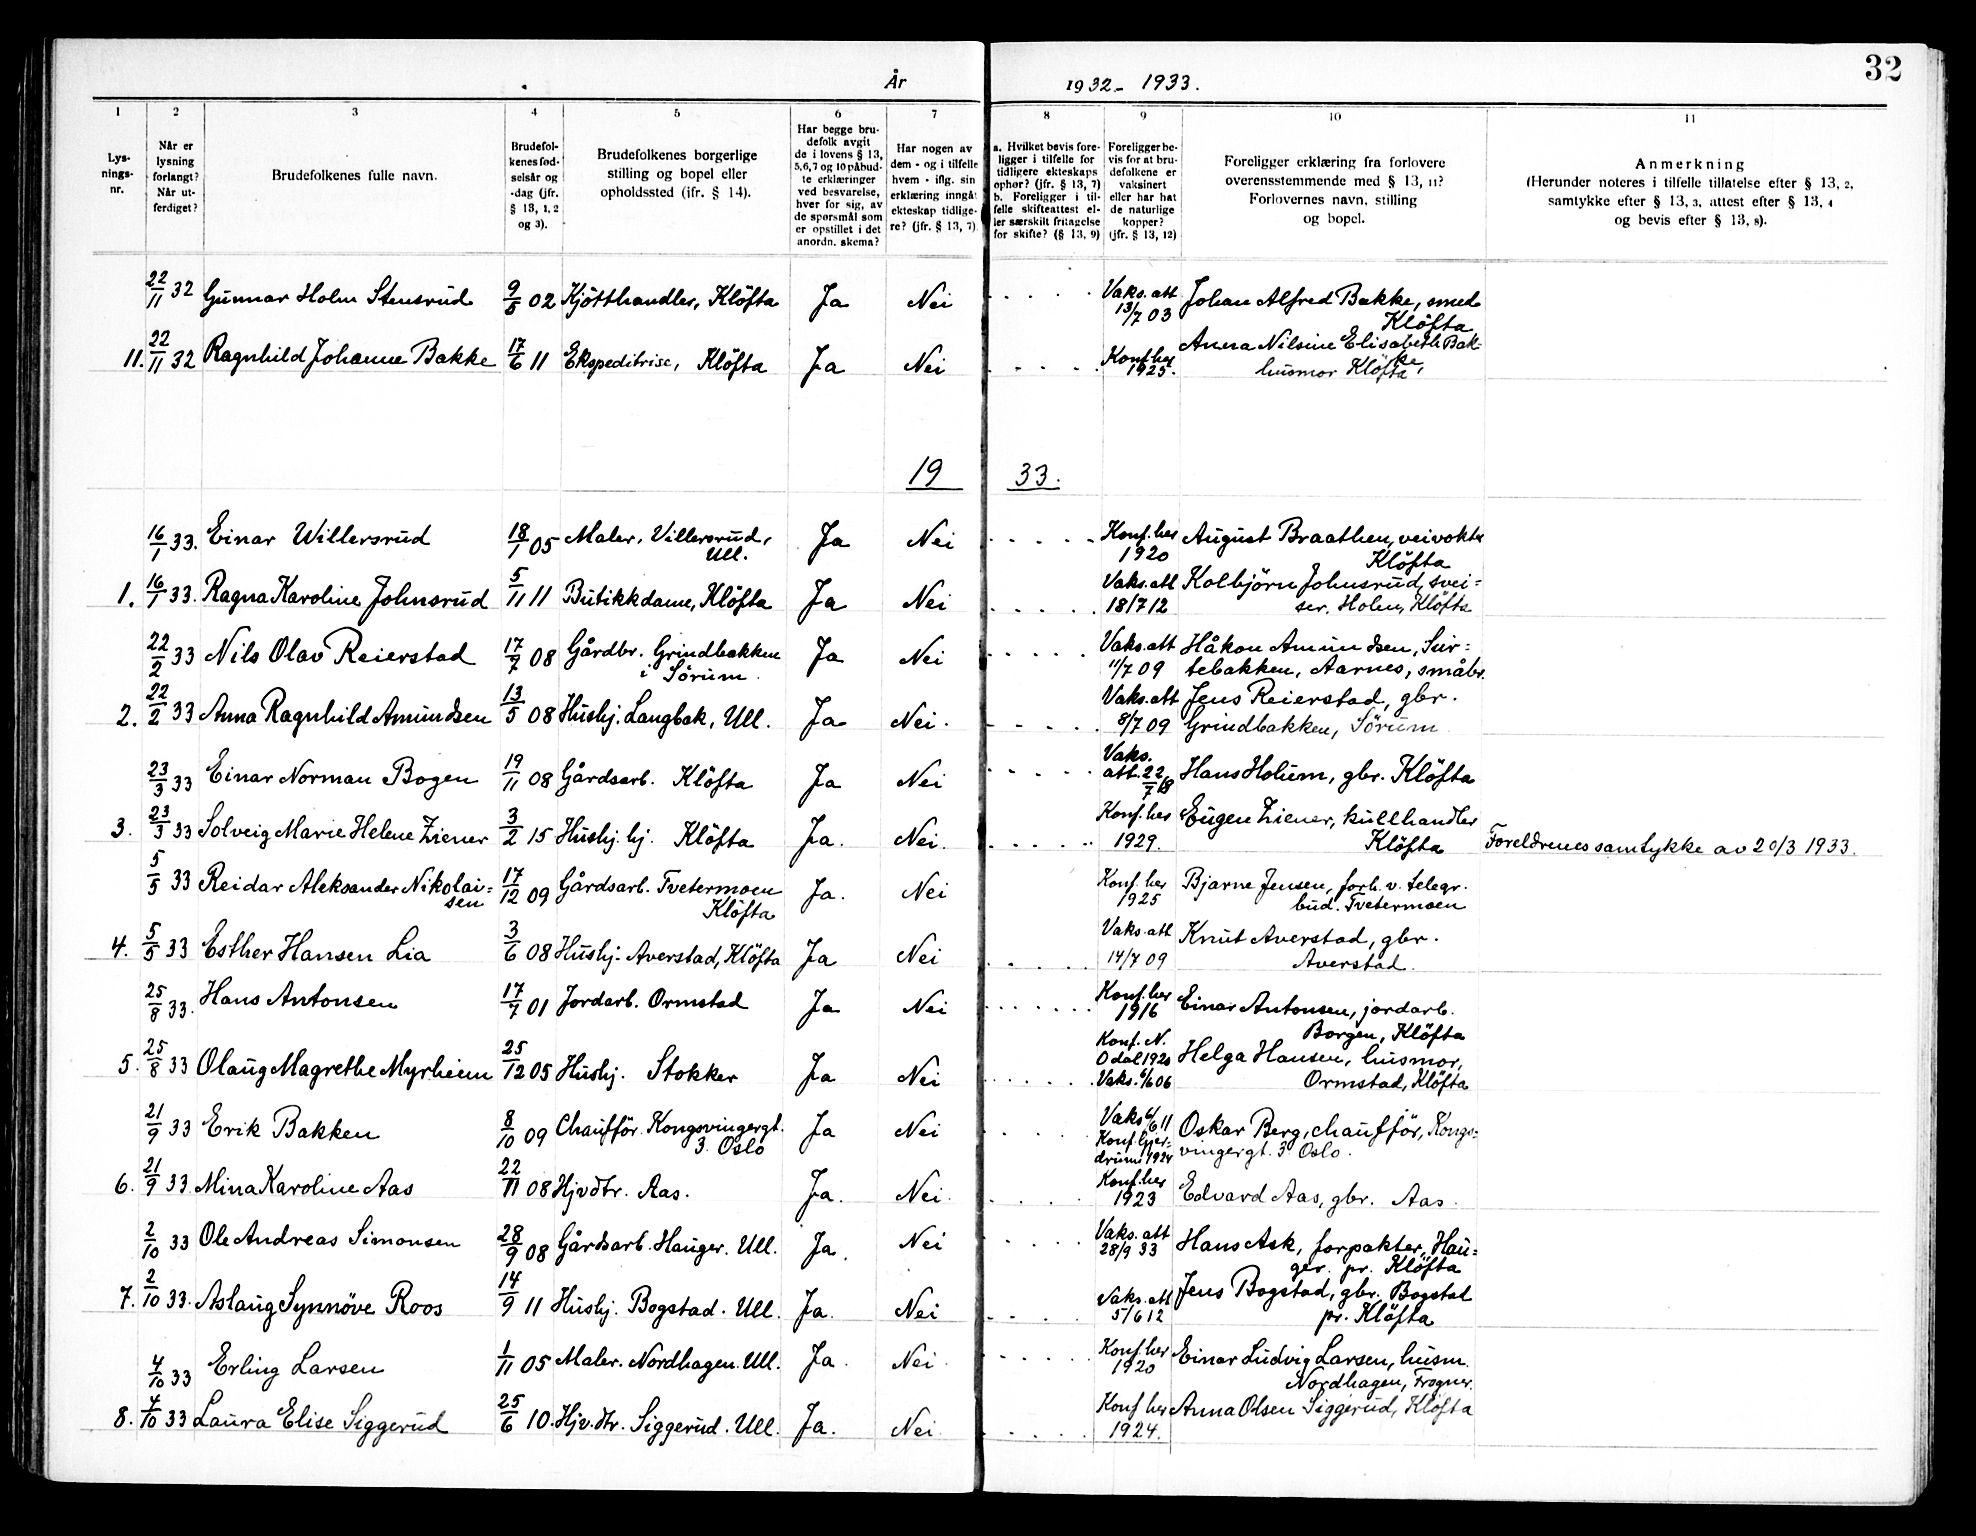 32
År 1932 - 1933.
1 2 3 4 5 6 7 8 9 10 11
Lys-
nings-
nr.
Når er
lysning
forlangt?
Når ut-
ferdiget?
Brudefolkenes fulle navn.
Brudefol-
kenes fød-
selsår og
-dag (jfr.
§ 13, 1, 2
og 3).
Brudefolkenes borgerlige
stilling og bopel eller
opholdssted (ifr. § 14).
Har begge bru-
defolk avgit
de i lovens § 13,
5,6,7 og 10 påbud-
te erklæringer
ved besvarelse,
hver for sig, av
de spørsmål som
er opstillet i det
anordn. skema?
Har nogen av
dem - og i tilfelle
hvem - iflg. sin
erklæring inngåt
ekteskap tidlige-
re? (jfr. § 13, 7)
a. Hvilket bevis fore-
ligger i tilfelle for
tidligere ekteskaps
ophør? (jfr. § 13, 7)
b. Foreligger i til-
felle skifteattest el-
ler særskilt fritagelse
for skifte? (§ 13, 9)
Foreligger be-
vis for at bru-
defolkene er
vaksinert
eller har hat
de naturlige
kopper?
(jfr. § 13, 12)
Foreligger erklæring fra forlovere
overensstemmende med § 13, 11?
Forlovernes navn, stilling
og bopel.
Anmerkning
(Herunder noteres i tilfelle tillatelse efter § 13, 2,
samtykke efter § 13, 3, attest efter § 13, 4
og bevis efter § 13, 8).
22/11 32 Gunnar Holm Stensrud 9/5 02 Kjötthandler, Klöfta Ja Nei Vaks. att 13/7 03 Johan Alfred Bakke, smed
Klöfta
11. 22/11 32 Ragnhild Johanne Bakke 17/6 11 Ekspeditrise, Klöfta Ja Nei Konf. her 1925. Anna Nilsine Elisabeth Bak-
ke,
husmor Klöfta
19 33.
16/1 33. Einar Willersrud 18/1 05 Maler, Villersrud, Ull. Ja Nei Konf. her 1920 August Braathen, veivokter
Klöfta
1. 16/1 33. Ragna Karoline Johnsrud 5/11 11 Butikkdame, Klöfta Ja Nei Vaks. att 18/7 12 Kolbjörn Johnsrud, svei=
ser. Holm, Klöfta
22/2 33 Nils Olav Reierstad 17/7 08 Gårdbr. Grindbakken i Sörum Ja Nei Vaks. att 11/7 09 Håkon Amundsen, Sur=
tebakken, Aarnes, småbr.
2. 22/2 33 Anna Ragnhild Amundsen 13/5 08 Hushj. Langbak, Ull. Ja Nei. Vaks. att 8/7 09 Jens Reierstad, gbr.
Grindbakken, Sörum
23/3 33 Einar Norman Bogen 19/11 08 Gårdsarb. Klöfta Ja Nei Vaks. att. 22/7 18 Hans Holum, gbr. Klöfta
3. 23/3 33 Solveig Marie Helene Ziener 3/2 15 Hushj. hj. Klöfta Ja. Nei. Konf. her 1929. Eugen Ziener, kullhandler
Klöfta Foreldrenes samtykke av 20/3 1933.
5/5 33 Reidar Aleksander Nikolai=
sen 17/12 09 Gårdsarb. Tvetermoen Klöfta Ja. Nei Konf. her 1925 Bjarne Jensen, forh. v. telegr.
bud. Tvetermoen
4. 5/5 33 Esther Hansen Lia 3/6 08 Hushj. Averstad, Klöfta Ja Nei Vaks. att 14/7 09 Knut Averstad, gbr.
Averstad.
25/8 33. Hans Antonsen 17/7 01 Jordarb. Ormstad Ja Nei Konf. her 1916 Einar Antonsen, jordarb.
Borgen, Klöfta
5. 25/8 33 Olaug Magrethe Myrheim 25/12 05 Hushj. Stokker Ja Nei Konf. N. Odal 1920 Vaks. 6/6 06 Helga Hansen, husmor,
Ormstad, Klöfta
21/9 33 Erik Bakken 8/10 09 Chaufför. Kongsvingergt. 3. Oslo Ja Nei Vaks 6/6 11 Konf. Gjer-
drum 1924 Oskar Berg, chaufför, Kongs=
vingergt. 3 Oslo.
6. 21/9 33 Mina Karoline Aas 22/11 08 Hjv. dtr. Aas. Ja. Nei. Konf. her 1923 Edvard Aas, gbr. Aas.
2/10 33 Ole Andreas Simonsen 28/9 08 Gårdsarb. Hauger. Ull. Ja. Nei Vaks. att 28/9 33 Hans Ask, forpakter, Hau=
ger. pr. Klöfta
7. 2/10 33. Aslaug Synnöve Roos 14/9 11 Hushj. Bogstad. Ull. Ja. Nei Vaks. att 5/6 12 Jens Bogstad, gbr. Bogstad
pr. Klöfta
4/10 33 Erling Larsen 1/11 05 Maler. Nordhagen. Ull. Ja. Nei. Konf. her 1920 Einar Ludvig Larsen, husm.
Nordhagen, Frogner.
8. 4/10 33 Laura Elise Siggerud 25/6 10. Hjv. dtr. Siggerud. Ull. Ja. Nei. Konf her 1924. Anna Olsen Siggerud, Klöfta